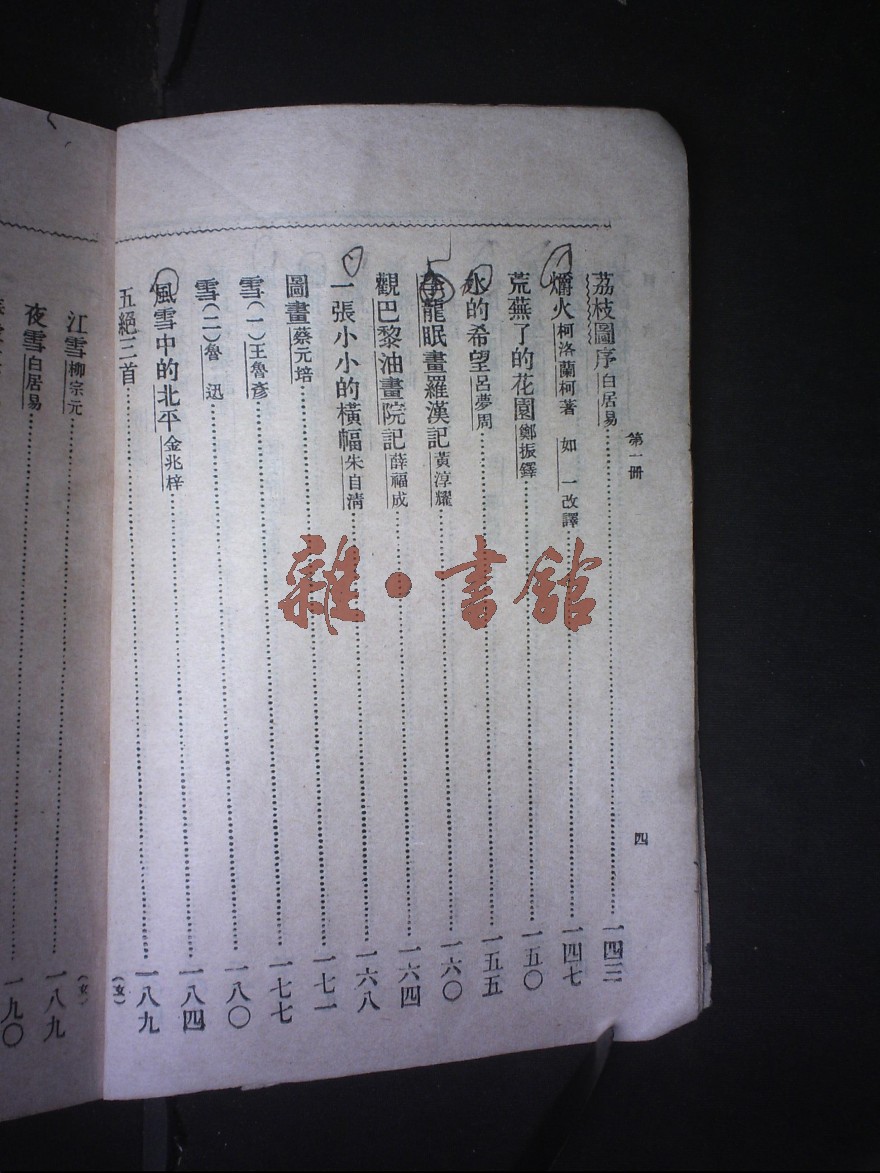 第一冊
四
荔枝圖序 白居易……一四三
爝火 柯洛蘭柯著 如一改譯……一四七
荒蕪了的花園 鄭振鐸……一五〇
水的希望 呂夢周……一五五
李龍眠畫羅漢記 黃淳耀……一六〇
觀巴黎油畫院記 薛福成……一六四
一張小小的橫幅 朱自清……一六八
圖畫 蔡元培……一七一
雪(一) 王魯彥……一七七
雪(二) 魯迅……一八〇
風雪中的北平 金兆梓……一八四
五絕三首……一八九
江雪 柳宗元……一八九
夜雪 白居易……一九〇
雜・書館